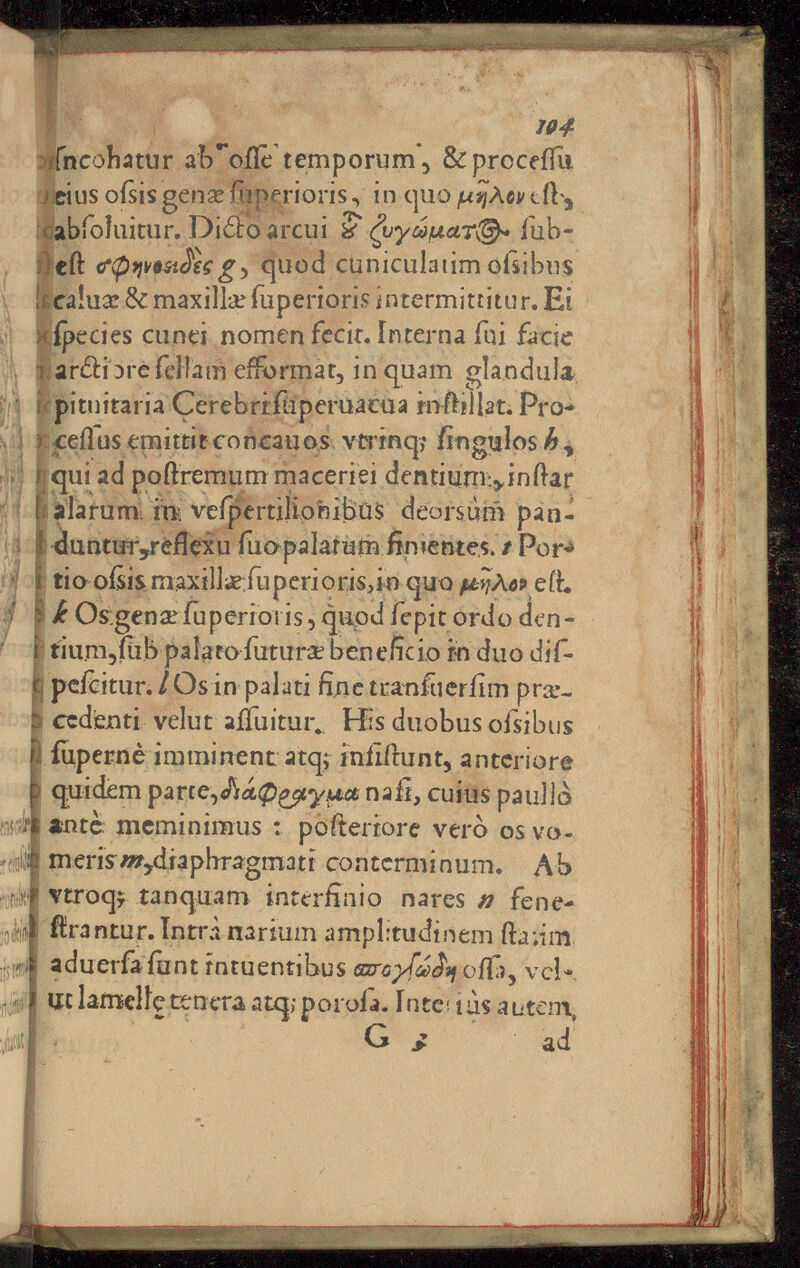 104
incohatur ab osse temporum, & processu
eius ossis genæ superioris, in quo μῆλον est,
absoluitur. Dicto arcui & ζυγώματ(os) sub-
est σφηνοειδὲς g, quod cuniculatim ossibus
caluæ & maxillæ superioris intermittitur. Ei
species cunei nomen fecit. Interna sui facie
arctiore sellam efformat, in quam glandula
pituitaria Cerebri superuacua instillat. Pro-
cessus emittit concauos vtrinq; singulos h,
qui ad postremum maceriei dentium, instar
alarum in vespertilionibus deorsùm pan-
duntur, reflexu suo palatum finientes. i Por-
tio ossis maxillæ superioris, in quo μῆλον est.
k Os genæ superioris, quod sepit ordo den-
tium, sub palato suturæ beneficio in duo dis-
pescitur. l Os in palati fine transuersim præ-
cedenti velut assuitur. His duobus ossibus
supernè imminent atq; insistunt, anteriore
quidem parte, διάφραγμα nasi, cuius paullò
antè meminimus : posteriore verò os vo-
meris m, diaphragmati conterminum. Ab
vtroq; tanquam interfinio nares n fene-
strantur. Intrà narium amplitudinem statim
aduersa sunt intuentibus σπογγώδη ossa, vel
ut lamellę tenera atq; porosa. Interiùs autem,
G 3 ad